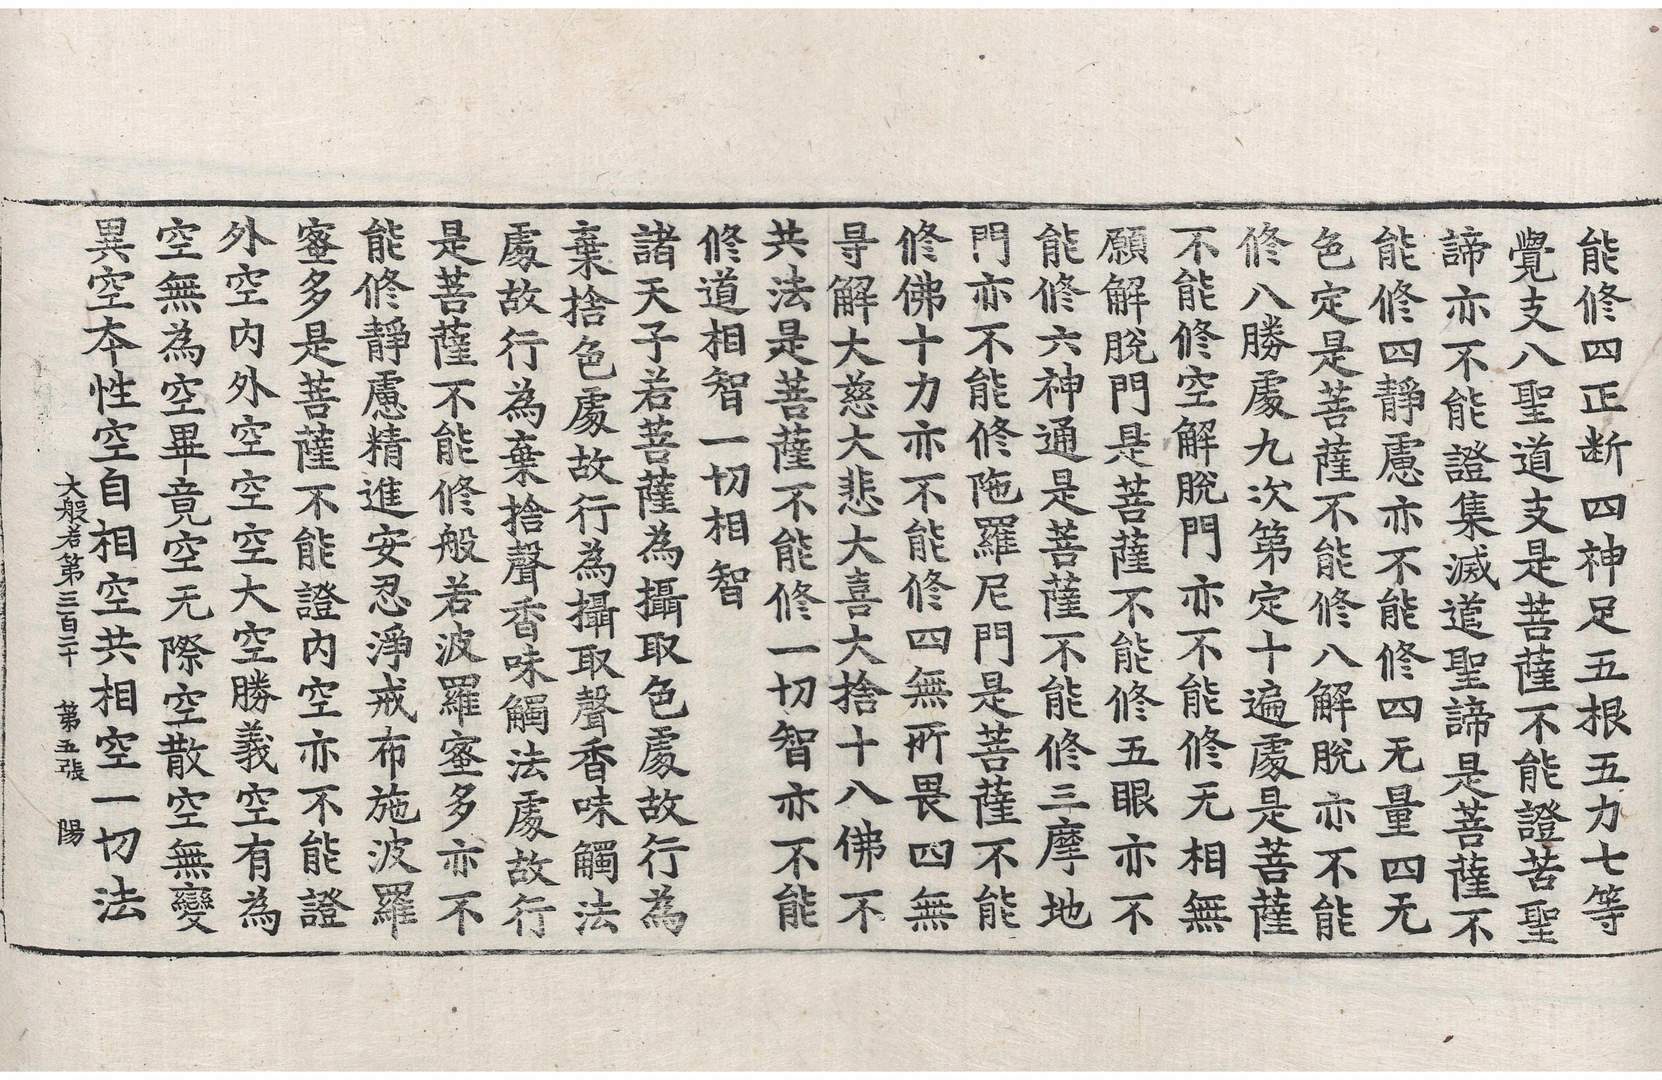 能修四正断四神足五根五力七等
覺支八聖道支是菩薩不能證苦聖
諦亦不能證集滅道聖諦是菩薩不
能修四靜慮亦不能修四无量四无
色定是菩薩不能修八解脫亦不能
修八勝處九次第定十遍處是菩薩
不能修空解脫門亦不能修无相無
願解脫門是菩薩不能修五眼亦不
能修六神通是菩薩不能修三摩地
門亦不能修陁羅尼門是菩薩不能
修佛十力亦不能修四無所畏四無
㝵解大慈大悲大喜大捨十八佛不
共法是菩薩不能修一切智亦不能
修道相智一切相智
諸天子若菩薩為攝取色處故行為
棄捨色處故行為攝取聲香味觸法
處故行為棄捨聲香味觸法處故行
是菩薩不能修般若波羅蜜多亦不
能修靜慮精進安忍淨戒布施波羅
蜜多是菩薩不能證內空亦不能證
外空內外空空空大空勝義空有為
空無為空畢竟空无際空散空無變
異空本性空自相空共相空一切法
大般若第三百二十 第五張 陽